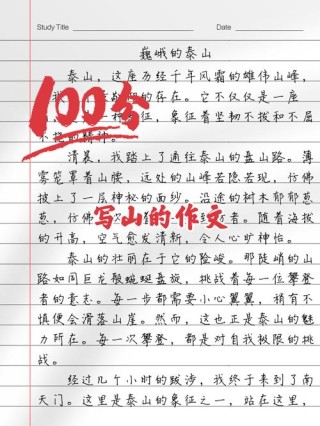 Study Title
Date
巍峨的泰山
泰山，这座历经千年风霜的雄伟山峰，
的存在。它不仅仅是一座
征，象征着坚韧不拔和不屈
不挠的精神。
100分
清晨，我踏上了通往泰山的盘山路。薄
雾笼罩着山腰，远处的山峰若隐若现，仿佛
披上了一层神秘的面纱。沿途的树木郁郁葱
葱，仿佛
者。随着海拔
写山的作文
的升高，空气愈发清新，令人心旷神怡。
泰山的壮丽在于它的险峻。那陡峭的山
路如同巨龙般蜿蜒盘旋，挑战着每一位攀登
者的意志。每一步都需要小心翼翼，稍有不
慎便会滑落山崖。然而，这也正是泰山的魅
力所在。每一次攀登，都是对自我极限的挑
战。
经过几个小时的跋涉，我终于来到了南
天门。这里是泰山的象征之一，站在这里，